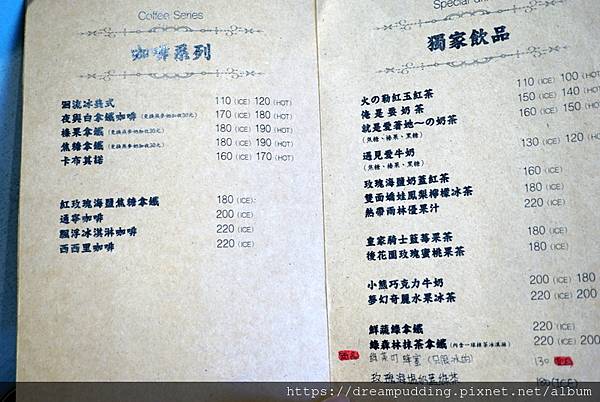 Coffee Series
咖啡系列
迴流冰美式 110 (ICE) 120 (HOT)
夜與白拿鐵咖啡 (更換燕麥奶加收30元) 170 (ICE) 180 (HOT)
榛果拿鐵 (更換燕麥奶加收30元) 180 (ICE) 190 (HOT)
焦糖拿鐵 (更換燕麥奶加收30元) 180 (ICE) 190 (HOT)
卡布其諾 160 (ICE) 170 (HOT)
紅玫瑰海鹽焦糖拿鐵 180 (ICE)
通寧咖啡 200 (ICE)
飄浮冰淇淋咖啡 220 (ICE)
西西里咖啡 220 (ICE)
Special
獨家飲品
火の勒紅玉紅茶 110 (ICE) 100 (HOT
俺是要奶茶 150 (ICE) 140 (HOT
就是愛著她～の奶茶 160 (ICE) 150 (HOT)
(焦糖、榛果、黑糖)
遇見愛牛奶 130 (ICE) 120 (HOT
(焦糖、榛果、黑糖)
玫瑰海鹽奶蓋紅茶 160 (ICE)
雙面嬌娃鳳梨檸檬冰茶 180 (ICE)
熱帶雨林優果汁 220 (ICE)
皇家騎士藍莓果茶 180 (ICE)
後花園玫瑰蜜桃果茶 180 (ICE)
小熊巧克力牛奶 200 (ICE) 180
夢幻奇麗水果冰茶 220 (ICE) 200
鮮蔬綠拿鐵 220 (ICE)
綠森林抹茶拿鐵 (內含一球抹茶冰淇淋) 220 (ICE) 200
130
玫瑰海鹽奶蓋綠茶 180 (ICE)
https://dreampudding.pixnet.net/album